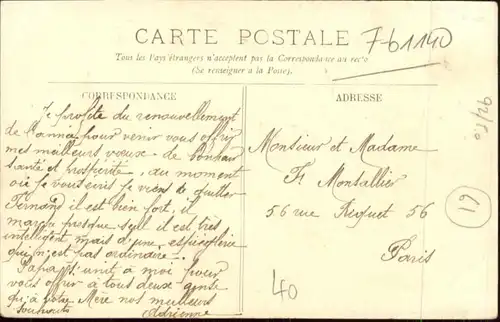 CARTE POSTALE
Tous les Pays étrangers n'acceptent pas la Correspondance au recto
(Se renseigner à la Poste).
76 1140
CORRESPONDANCE
Je profite du renouvellement
de l'année pour venir vous offrir
mes meilleurs vœux de bonheur
santé et prospérité, au moment
où je vous écris je viens de quitter
Fernand il est bien fort, il
marche presque seul il est très
intelligent mais d'une espièglerie
qui n'est pas ordinaire.
Papa s'unit à moi pour
vous offrir à tous deux ainsi
qu'à votre Mère nos meilleurs
souhaits
Adrienne
ADRESSE
Monsieur et Madame
Fr Montallier
56 rue 56
Paris
92/50
19
40